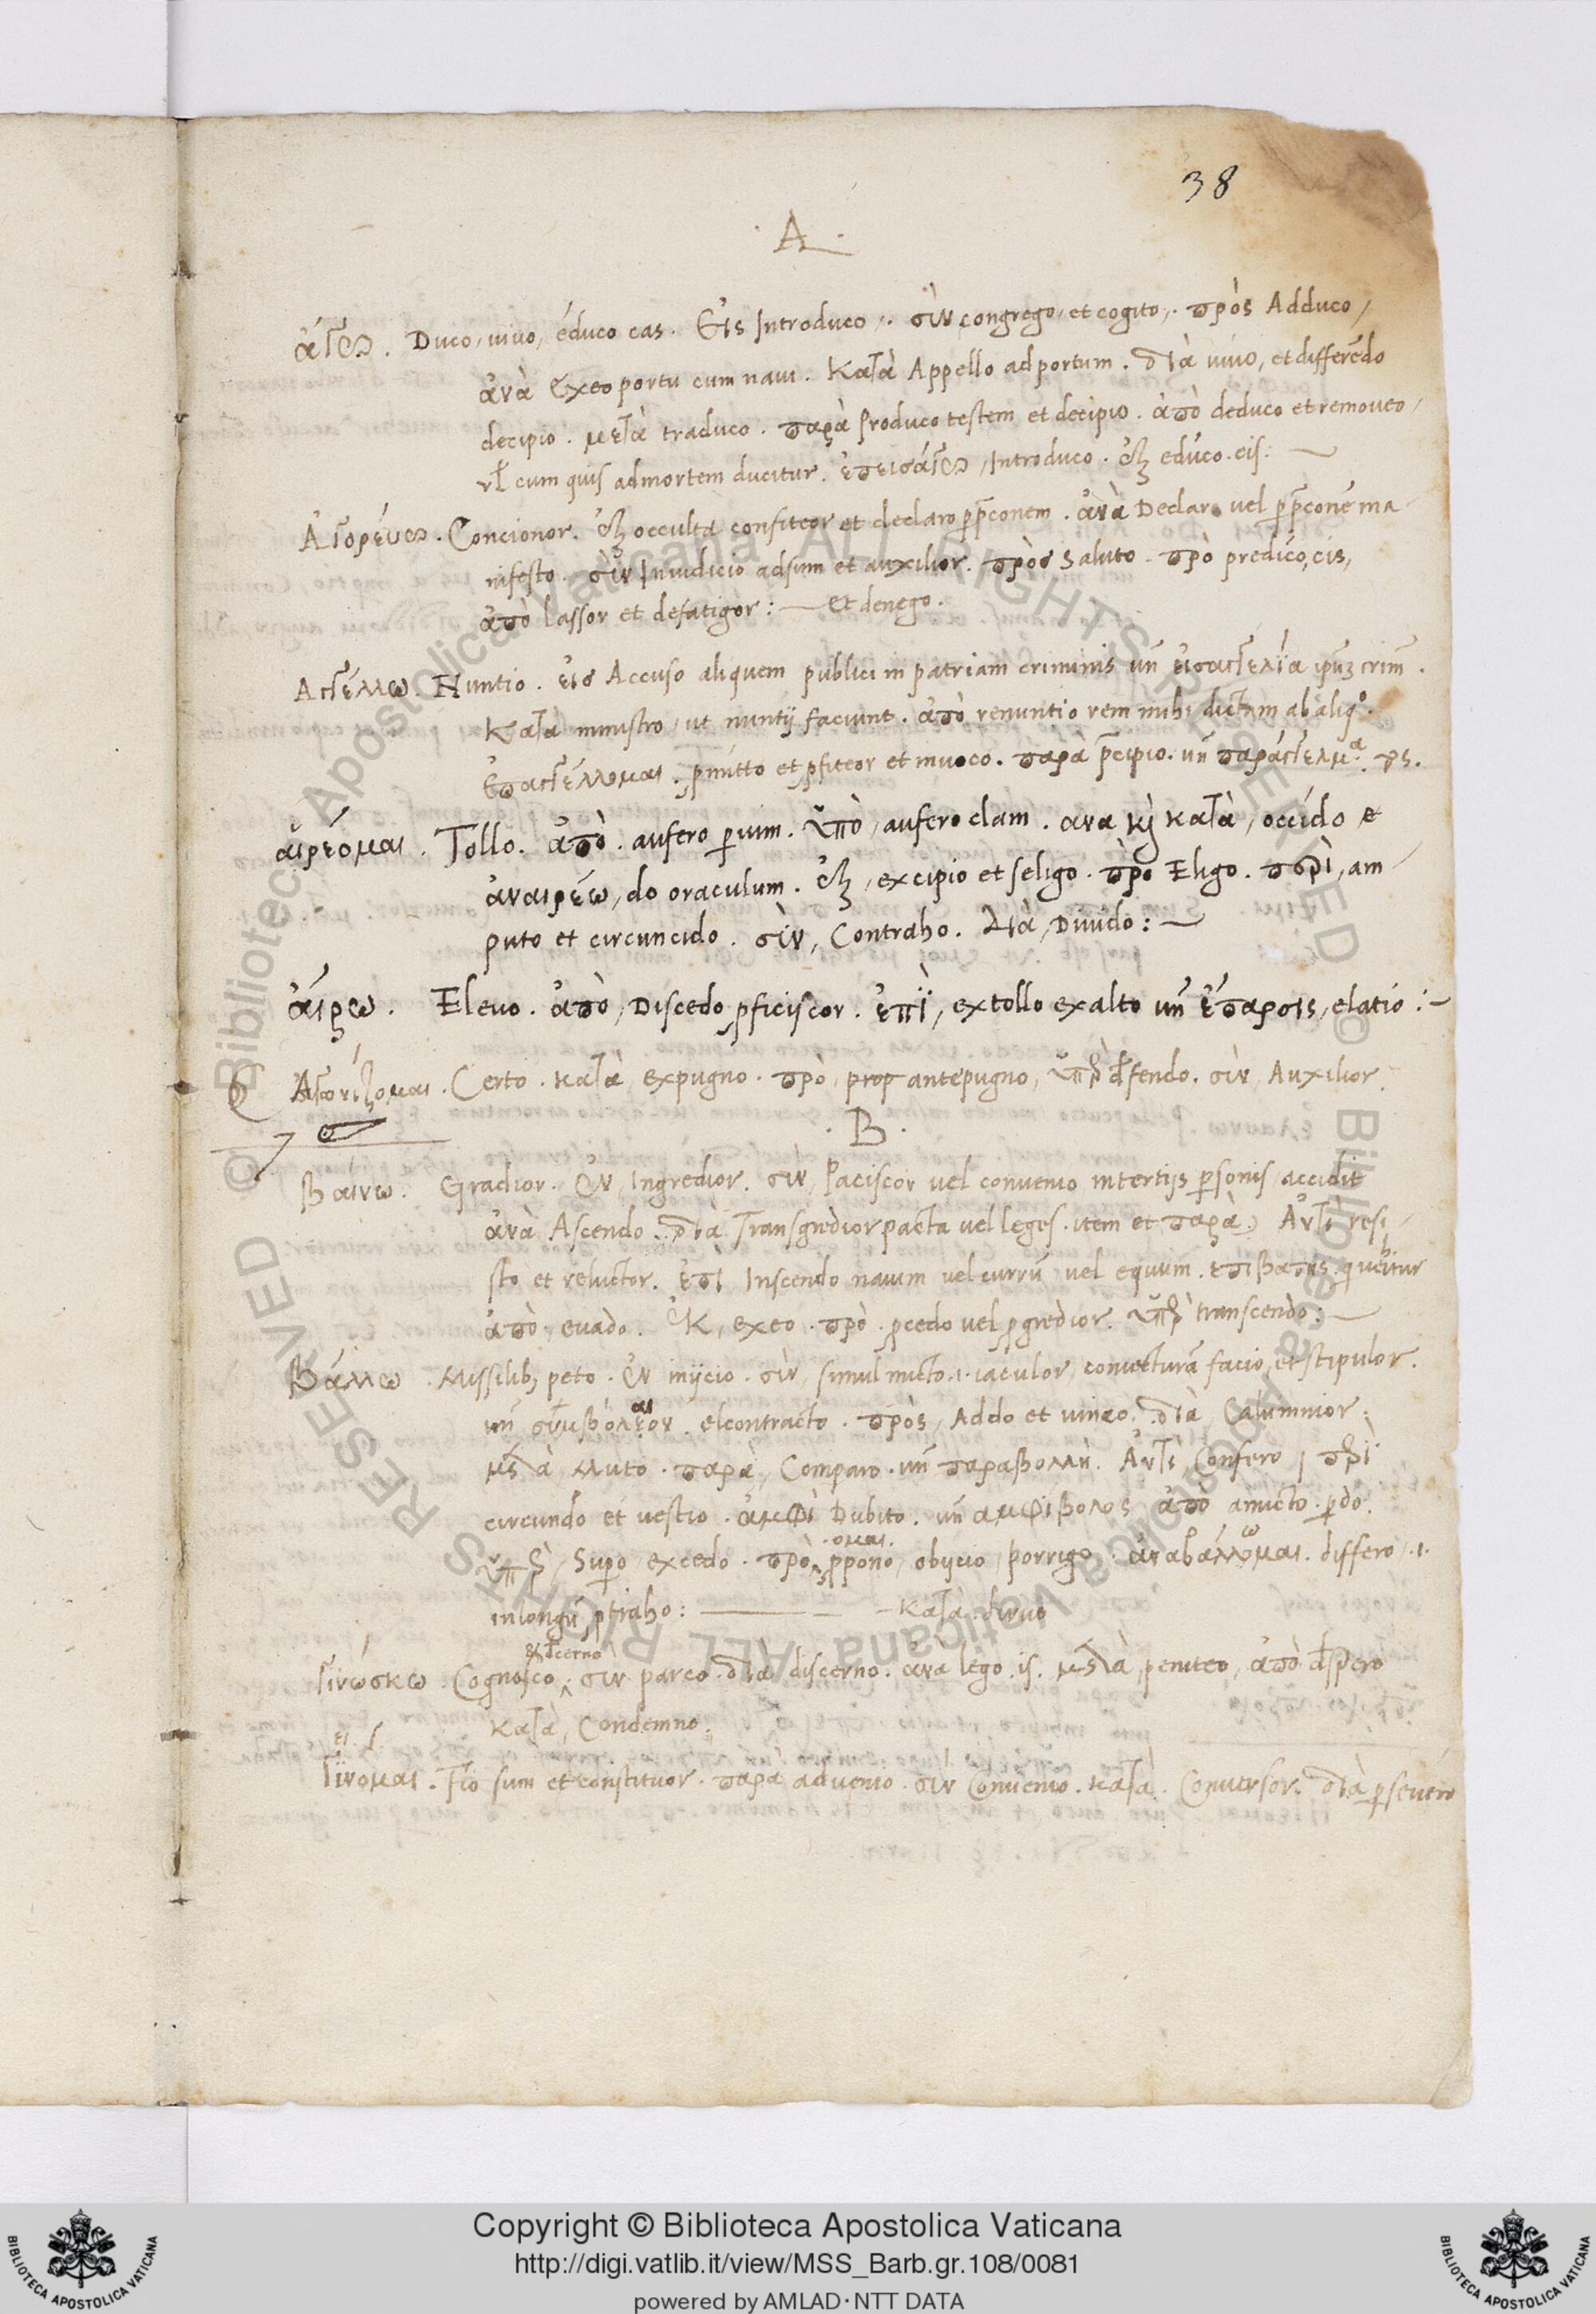 38
·A·
ἄγω. Duco, uiuo, éduco cas. Εἰς Introduco,. σὺν congrego, et cogito,. πρὸς Adduco,
ἀνὰ Exeo portu cum naui. κατὰ Appello ad portum. διὰ uiuo, et differẽdo
decipio. μετὰ traduco. παρὰ Produco testem et decipio. ἀπὸ deduco et remoueo,
vl̃ cum quis ad mortem ducitur. ἐπεισάγω, Introduco. ἐξ edúco. cis: —
Ἀγορέυω. Concionor. ἐξ occulta confiteor et declaro p p̃conem. ἀνὰ Declaro uel p p̃conẽ ma-
nifesto. σὺν In iudicio adsum et auxilior. πρὸσ Saluto. πρὸ predíco, cis,
ἀπὸ lassor et defatigor: — et denego.
Αγγέλλω. Nuntio. εἰσ Accuso aliquem publici in patriam criminis uñ εἰσαγγελΐα ipũ crim̃.
κατὰ ministro, ut nuntij faciunt. ἀπὸ renuntio rem mihi dictam ab aliqº.
ἐπαγγέλλομαι. pmitto et pfiteor et inuoco. παρὰ p̃cipio. uñ παράγγελμα.
αἱρέομαι. Tollo. ἀπὸ. aufero p uim. ὑπὸ, aufero clam. ανα κὶ κατὰ, occído et
ἀναιρέω, do oraculum. ἐξ, excipio et seligo. πρὸ Eligo. περὶ, am-
puto et circuncido. σὺν, Contraho. Διὰ, Diuido: —
ἄιρω. Eleuo. ἀπὸ, Discedo pficiscor. ἐπῒ, extollo exalto uñ ἔπαρσις, elatio: —
Ἀγωνίζομαι. Certo. κατὰ, expugno. πρὸ, prop antepugno, ὑπὲρ d̃fendo. σὺν, Auxilior.
·B·
Βαίνω. Gradior. ἐν, Ingredior. σὺν, Paciscor uel conuenio in tertijs psonis accidit
ἀνὰ Ascendo. διὰ Transgredior pacta uel leges. item et παρὰ) Ἀντι resi-
sto et reluctor. ἐπὶ Inscendo nauim uel currũ uel equum. επιβατης.
ἀπὸ, euado. ἐκ, exeo. πρὸ. pcedo uel pgredior. ὑπὲρ transcendo: —
Βάλλω. Missilib; peto. ἐν inijcio. σὺν, simul mitto .i. iaculor, coniecturã facio, et stipulor.
uñ συμβόλεον. el contracto. πρὸς, Addo et uinco. διὰ, Calumnior.
μετὰ Muto. παρὰ, Comparo. uñ παραβολλὴ. Ἀντὶ, Confero, περὶ
circundo et uestio. ἀμφὶ Dubito. uñ αμφίβολος ἀπὸ amicto. pdo.
ομαι. ω
ὑπὲρ, Supo, excedo. πρὸ ppono, obijcio, porrigo. ἀναβάλλομαι. differo, .i.
in longũ ptraho: — κατὰ. diruo
et d̃cerno
Γινώσκω. Cognosco. σὺν parco. διὰ discerno. ἀνὰ lego. is. μετὰ, peniteo, ἀπὸ d̃spero
κατὰ, Condemno.
Γίνομαι. Fio sum et constituor. παρα aduenio. σὺν Conuenio. κατὰ. Conuersor. διὰ pseuero
© Biblioteca Apostolica Vaticana ALL RIGHTS RESERVED
© Biblioteca Apostolica Vaticana ALL RIGHTS RESERVED
Copyright © Biblioteca Apostolica Vaticana
http://digi.vatlib.it/view/MSS_Barb.gr.108/0081
powered by AMLAD·NTT DATA
BIBLIOTECA APOSTOLICA VATICANA
BIBLIOTECA APOSTOLICA VATICANA